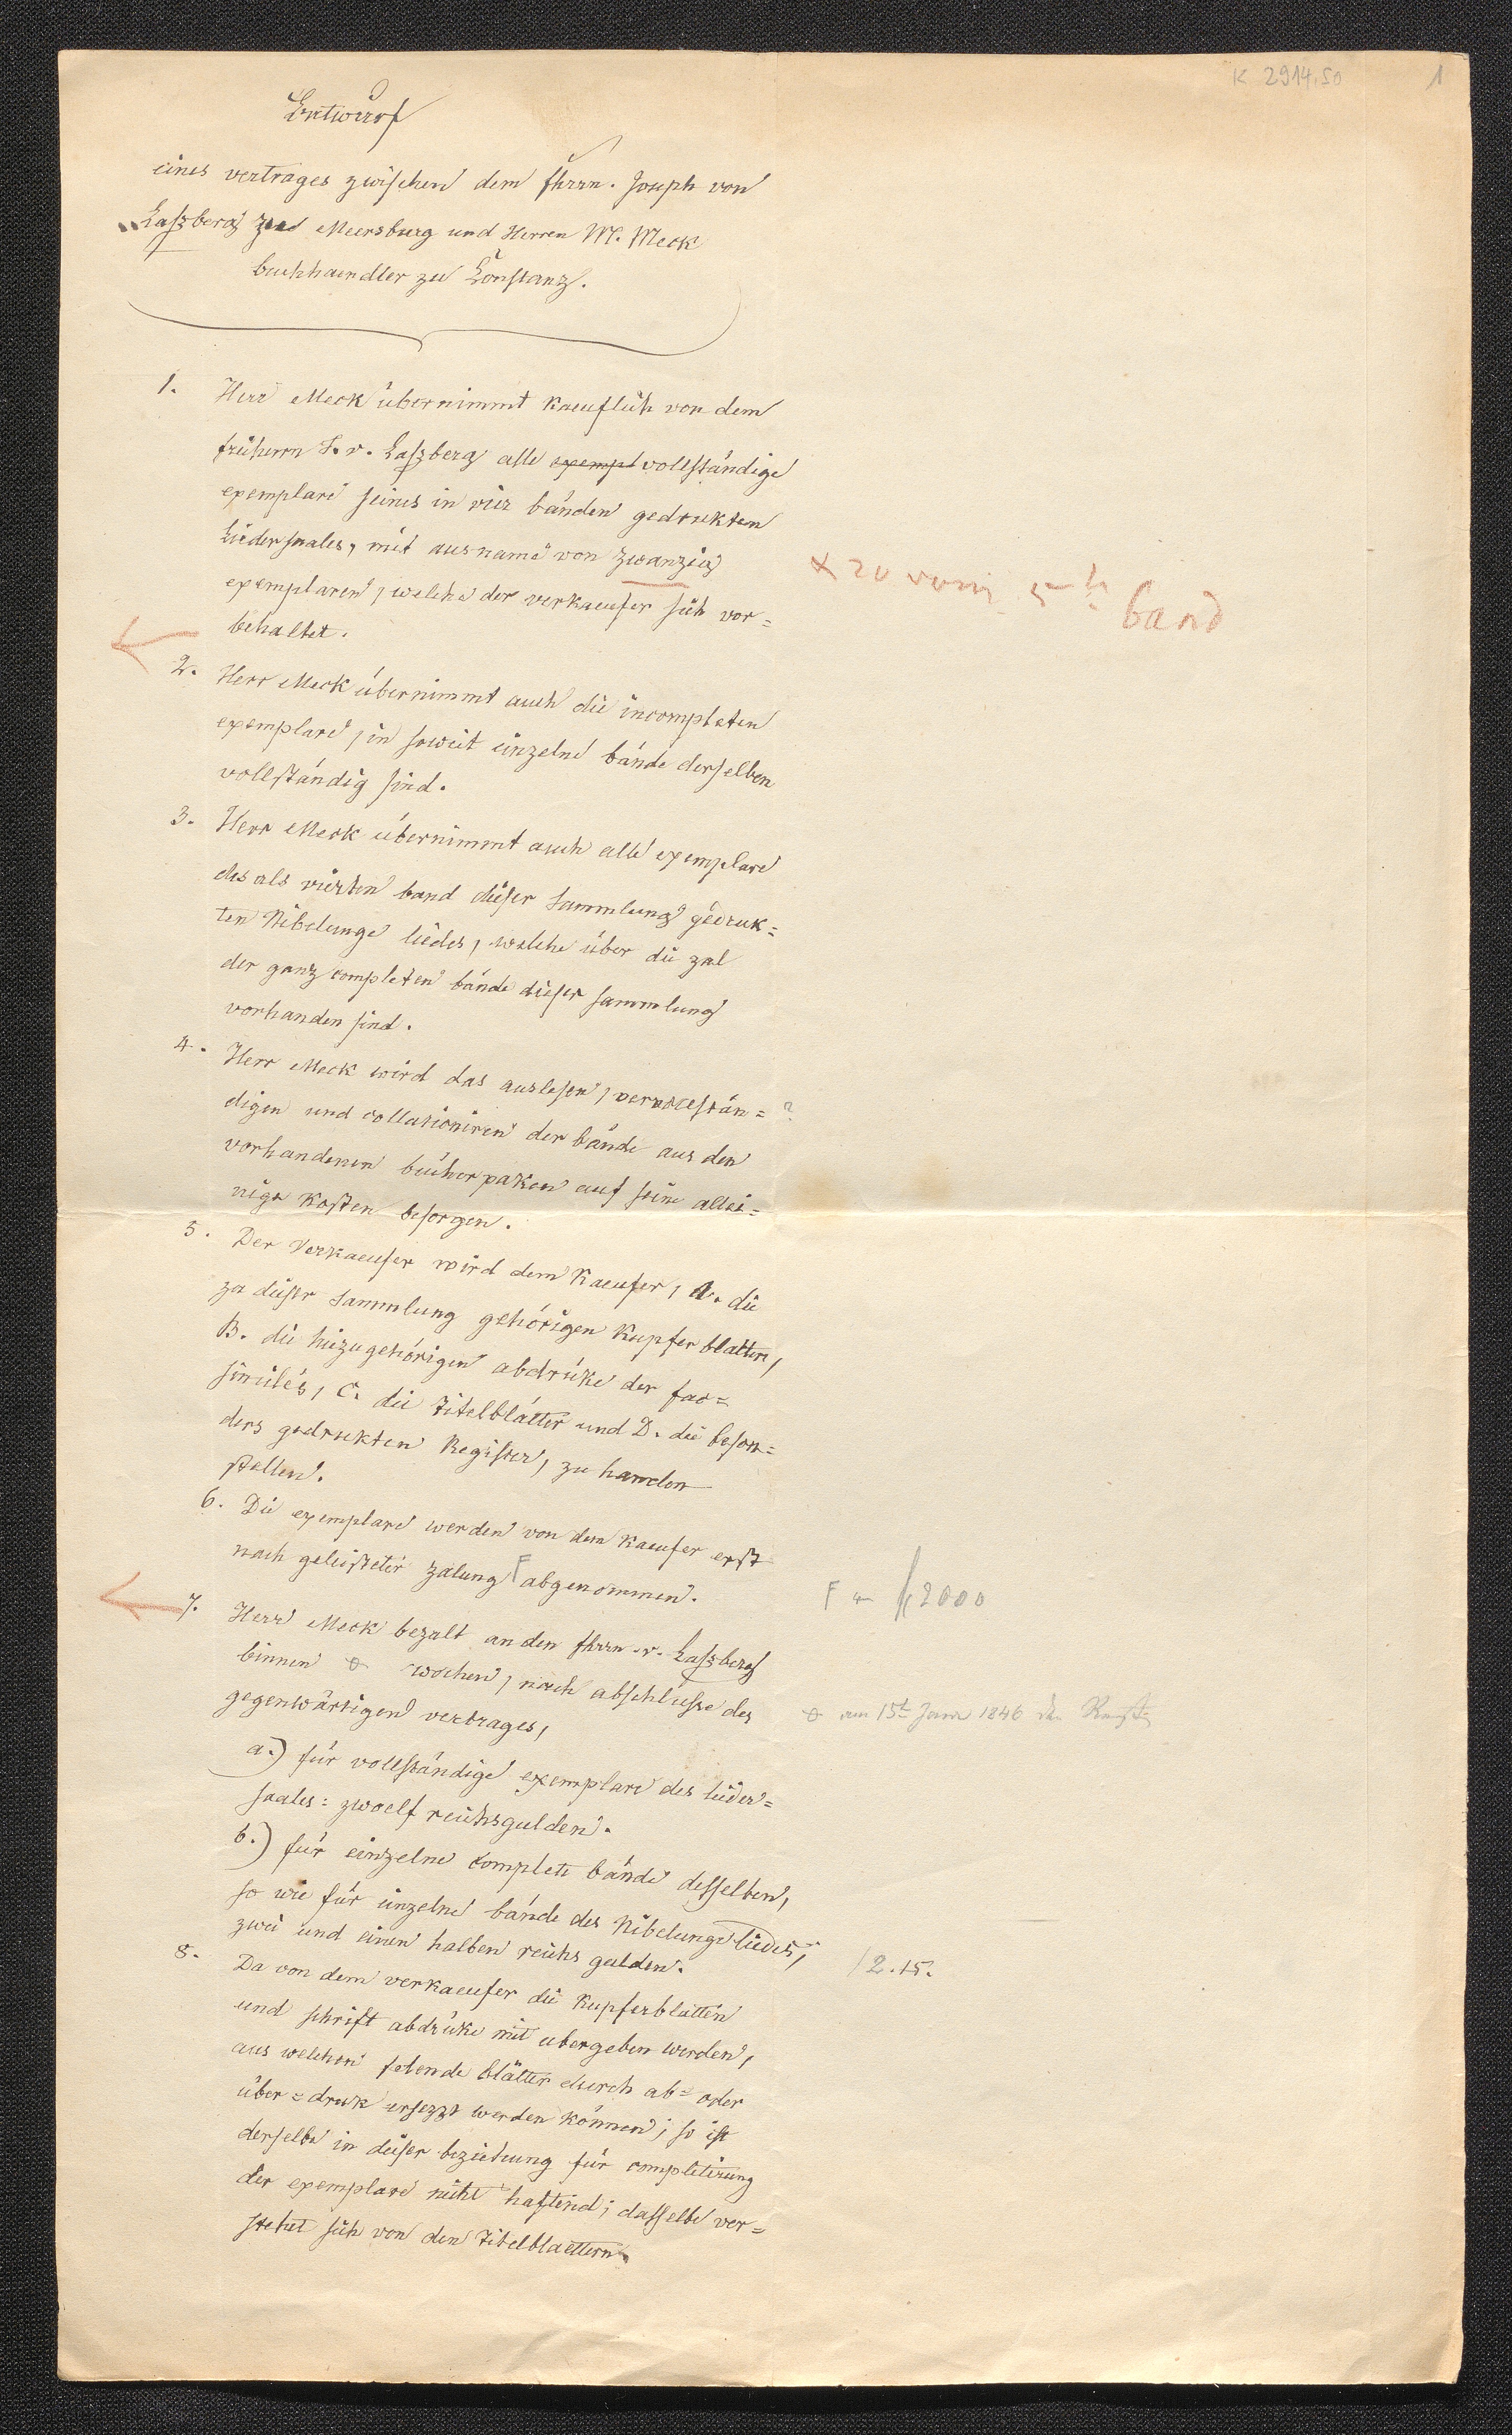 K 2914,50 1
Entwurf
eines vertrages zwischen dem fhrrn. Joseph von
Laszberg zu Meersburg und Herren W. Meck
buchhaendler zu Constanz.
1. Herr Meck übernimmt kaeuflich von dem
freiherrn J. v. Laszberg alle exempl vollständige
exemplare seines in vier bänden gedrukten
Liedersaales, mit ausname von zwanzig
exemplaren, welche der verkaeufer sich vor=
behaltet.
x 20 vom 5t band
2. Herr Meck übernimmt auch die incompleten
exemplare, in soweit einzelne bände derselben
vollständig sind.
3. Herr Meck übernimmt auch alle exemplare
des als vierten band dieser Sammlung gedruk=
ten Nibelunge liedes, welche über die zal
der ganz completen bände dieser sammlung
vorhanden sind.
4. Herr Meck wird das auslesen, vervollstän= ?
digen und collationiren der bände aus den
vorhandenen bücherpaken auf seine allei=
nige kosten besorgen.
5. Der Verkaeufer wird dem Kaeufer, A. die
zu dieser Sammlung gehörigen Kupfer blatten,
B. die hiezu gehörigen abdrüke der fac=
similés, C. die Titelblätter und D. die beson=
ders gedrukten Register, zu handen
stellen.
6. Die exemplare werden von dem Kaeufer erst
nach geleisteter zalung F abgenommen.
F fl 2000
7. Herr Meck bezalt an den fhrrn v. Laszberg
binnen wochen, nach abschlusse des
gegenwärtigen vertrages,
am 15t Januar 1846 den Rest
a.) für vollständige exemplare des lieder=
saales: zwoelf reichsgulden.
b.) für einzelne complete bände desselben,
so wie für einzelne bände des Nibelunge liedes,
zwei und einen halben reichs gulden.
/ 2.15.
8. Da von dem verkaeufer die Kupferblatten
und schrift abdrüke mit übergeben werden,
aus welchen felende blätter durch ab= oder
über=druk ersezzt werden können; so ist
derselbe in dieser beziehung für completirung
der exemplare nicht haftend; dasselbe ver=
stehet sich von den Titelblaettern.